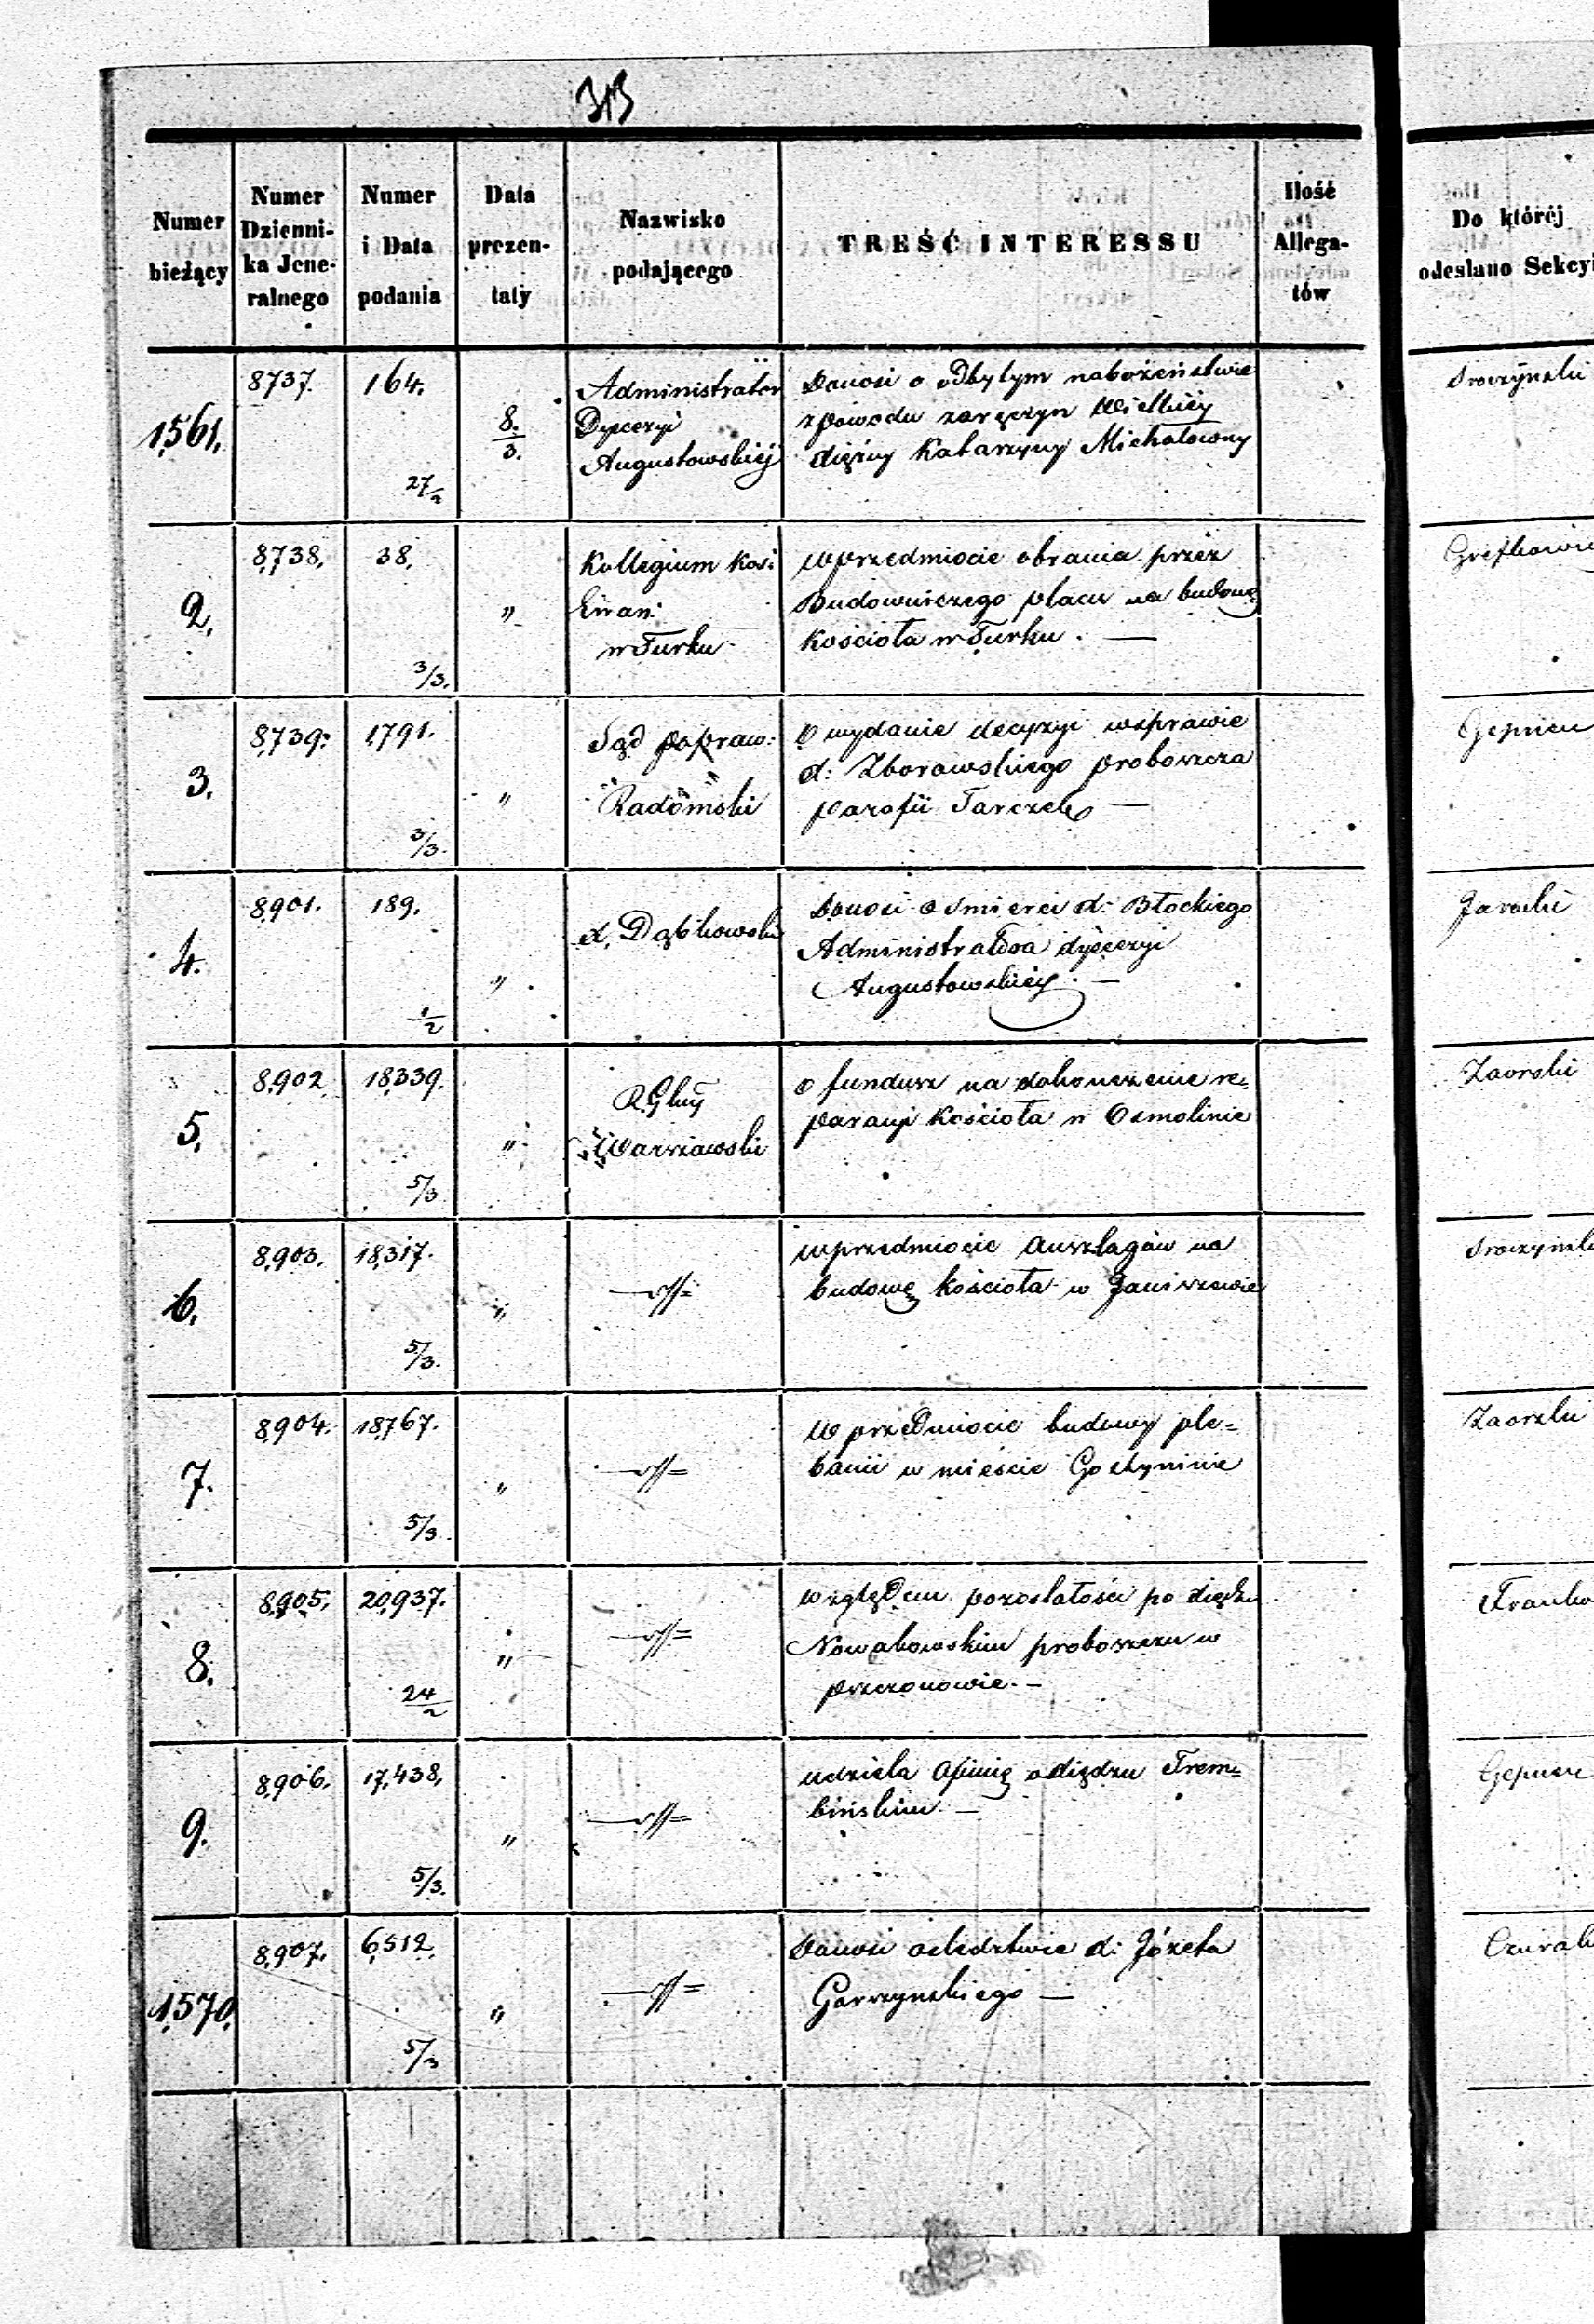 313
Numer bieżący
Numer Dzienni- ka Jene- ralnego
Numer i Data podania
Data prezen- taty
Nazwisko podającego
TREŚĆ INTERESSU
Ilość Allega- tów
Do któréj odesłano Sekcyi
1,561. 8737. 164. 27/2 8./3.
Administrator
Dyecezyi
Augustowskiéj
Donosi o odbytym nabożeństwie
z powodu zaręczyn Wielkiéj
Xiężny Katarzyny Michałowny
2. 8,738. 38. 3/3. "
Kollegium Koś:
Ewan:
w Turku
w przedmiocie obrania przez
Budowniczego placu na budowę
Kościoła w Turku. —
3. 8,739. 1,791. 3/3. "
Sąd popraw:
Radomski
O wydanie decyzyi w sprawie
X: Zborowskiego proboszcza
parafii Tarczek —
4. 8,901. 189. 1/2 "
X. Dąbkowski
Donosi o śmierci X: Błockiego
Administratora dyecezyi
Augustowskiéj. —
5. 8,902 18,339. 5/3 "
R. Gbny
Warszawski
O fundusz na dokończenie re-
paracyi Kościoła w Osmolinie
6. 8,903. 18,317. 5/3. "
w przedmiocie Anszlagów na
budowę Kościoła w Janiszewie
Zaorski
7. 8,904. 18,767. 5/3. "
W przedmiocie budowy ple-
banii w mieście Gostyninie
Zaorski
8. 8,905. 20,937. 24/2 "
względem pozostałości po Xiędzu
Nowakowskim proboszczu w
9. 8,906. 17,438. 5/3. "
udziela Opinię o Xiędzu Trem-
bińskim. —
1,570. 8,907. 6,512. 5/3 "
Donosi o śledztwie X: Józefa
Garszyńskiego —